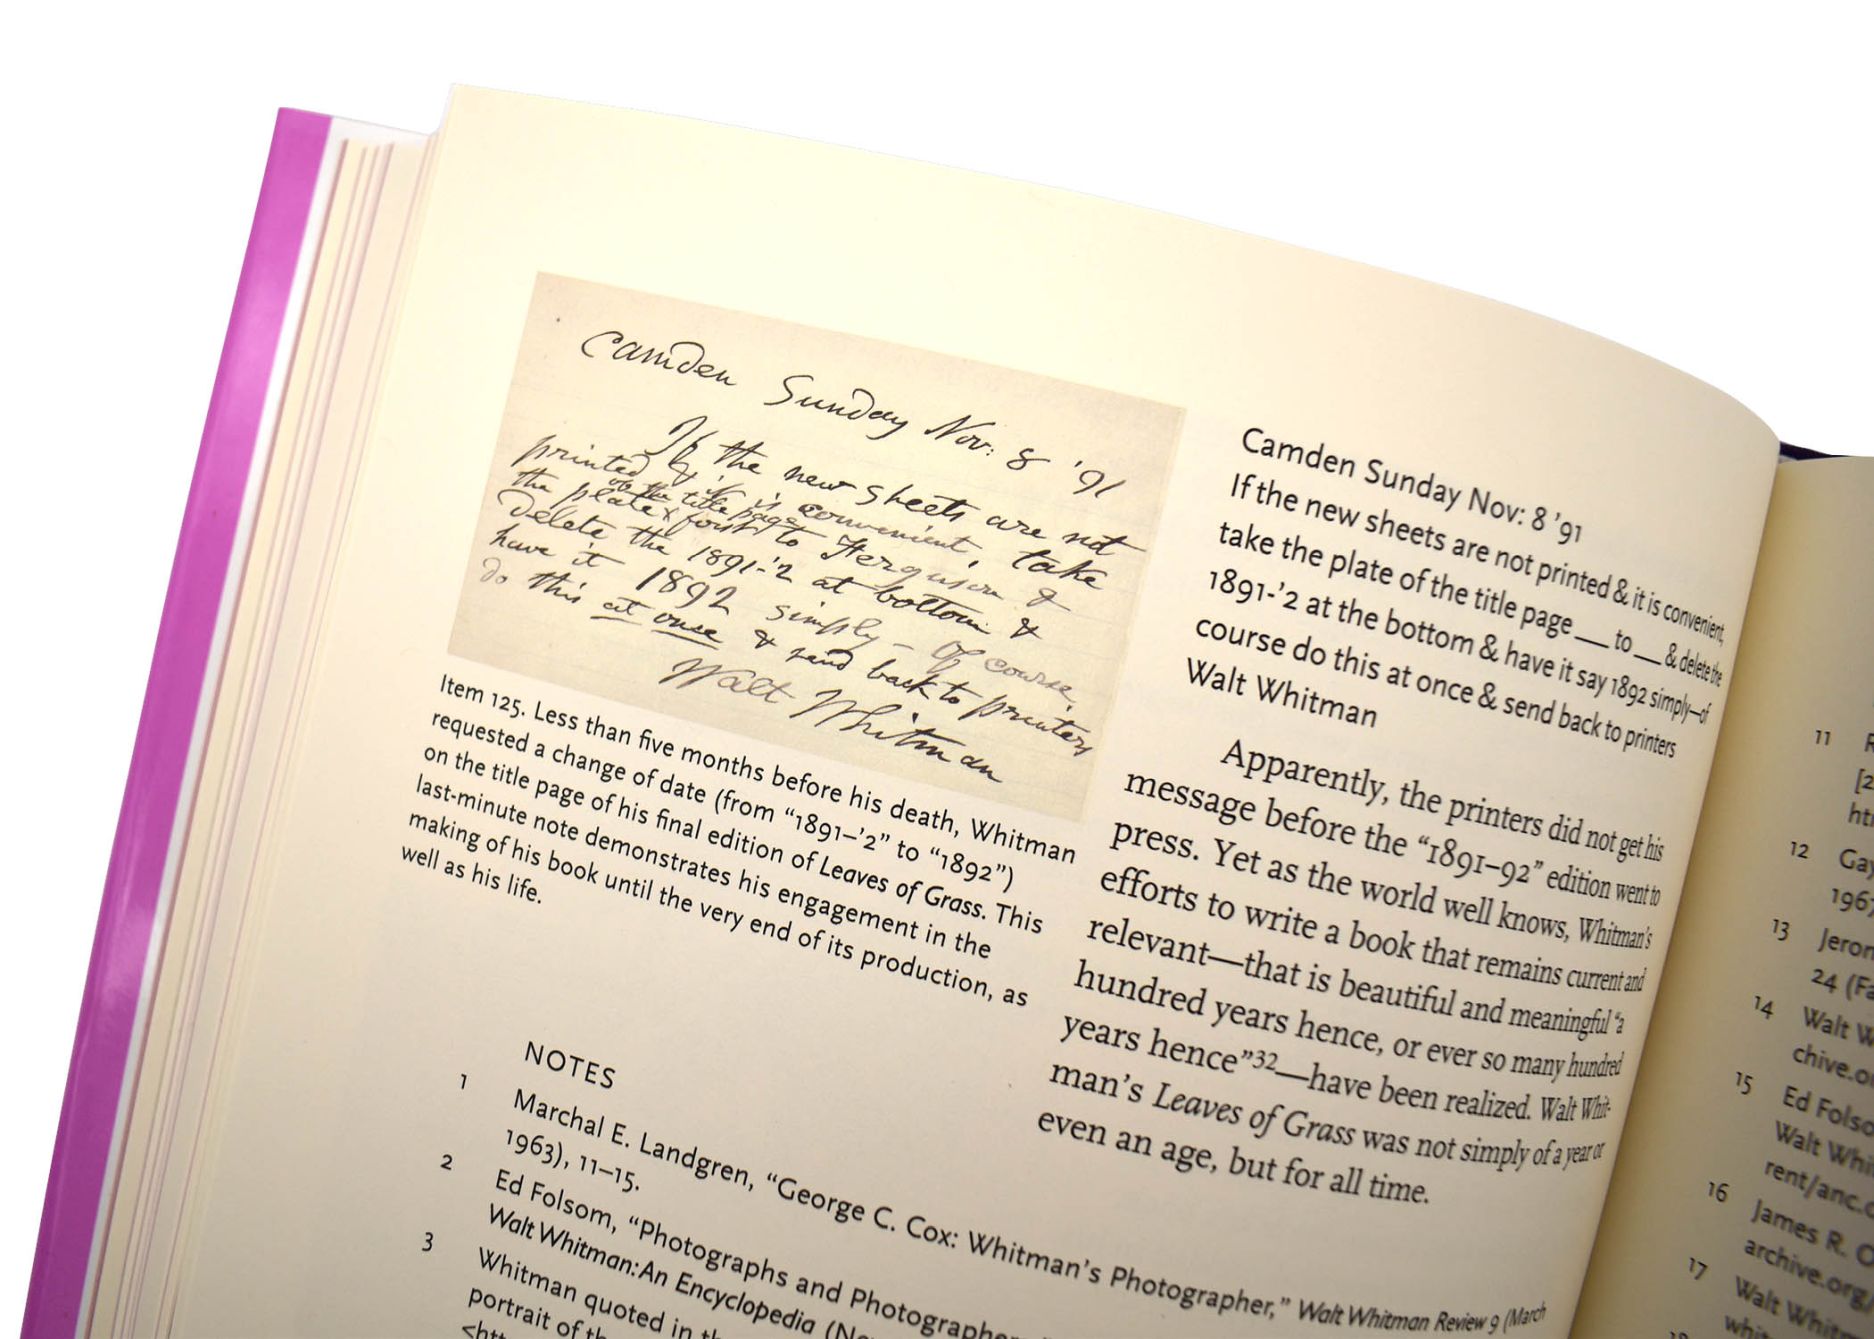 Camden Sunday Nov: 8 '91
If the new sheets are not
printed & it is convenient, take
of the title page
the plate x first to Ferguson &
delete the 1891-'2 at bottom &
have it 1892 simply – Of course
do this at once & send back to printers
Walt Whitman
Item 125. Less than five months before his death, Whitman
requested a change of date (from “1891–’2” to “1892”)
on the title page of his final edition of Leaves of Grass. This
last-minute note demonstrates his engagement in the
making of his book until the very end of its production, as
well as his life.
Camden Sunday Nov: 8 ’91
If the new sheets are not printed & it is convenient,
take the plate of the title page ___ to ___ & delete the
1891-’2 at the bottom & have it say 1892 simply—of
course do this at once & send back to printers
Walt Whitman
Apparently, the printers did not get his
message before the “1891–92” edition went to
press. Yet as the world well knows, Whitman’s
efforts to write a book that remains current and
relevant—that is beautiful and meaningful “a
hundred years hence, or ever so many hundred
years hence”32—have been realized. Walt Whit-
man’s Leaves of Grass was not simply of a year or
even an age, but for all time.
NOTES
1 Marchal E. Landgren, “George C. Cox: Whitman’s Photographer,” Walt Whitman Review 9 (March
1963), 11–15.
2 Ed Folsom, “Photographs and Photographer
Walt Whitman: An Encyclopedia (Ne
3 Whitman quoted in th
portrait of th
<htt
11 R
[2
ht
12 Gay
1967
13 Jeron
24 (Fa
14 Walt W
chive.o
15 Ed Folso
Walt Whi
rent/anc.
16 James R. O
archive.org/
17 Walt Whitm
whit